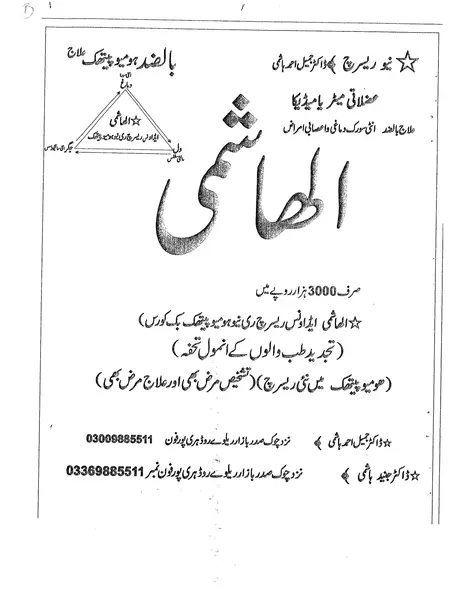 B
☆ نیو ریسرچ ﴾ ڈاکٹر جمیل احمد ہاشمی
بالضد ہومیوپیتھک علاج
عضلاتی میٹریا میڈیکا
علاج بالضد انٹی سورک دماغی و اعصابی امراض
دماغ
☆الھاشمی
ایڈوانس ریسرچ ری نیو ہومیوپیتھک
دل
جگر
الھاشمی
صرف 3000 ہزار روپے میں
☆الھاشمی ایڈوانس ریسرچ ری نیو ہومیوپیتھک بک کورس)
(تجدید طب والوں کے انمول تحفہ)
(ھومیوپیتھک میں نئی ریسرچ)(تشخیص مرض بھی اور علاج مرض بھی)
☆ڈاکٹر جمیل احمد ہاشمی ﴾ نزد چوک صدر بازار ریلوے روڈ ہری پور فون 03009885511
☆ڈاکٹر جنید ہاشمی ﴾ نزد چوک صدر بازار ریلوے روڈ ہری پور فون نمبر 03369885511